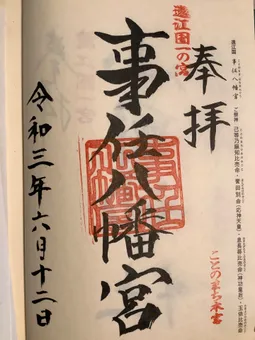 遠江國 事任八幡宮 ご祭神 己等乃麻知比売命・誉田別命(応神天皇)・息長帯比売命(神功皇后)・玉依比売命
奉拝
遠江国一の宮
事任八幡宮
令和三年六月十二日